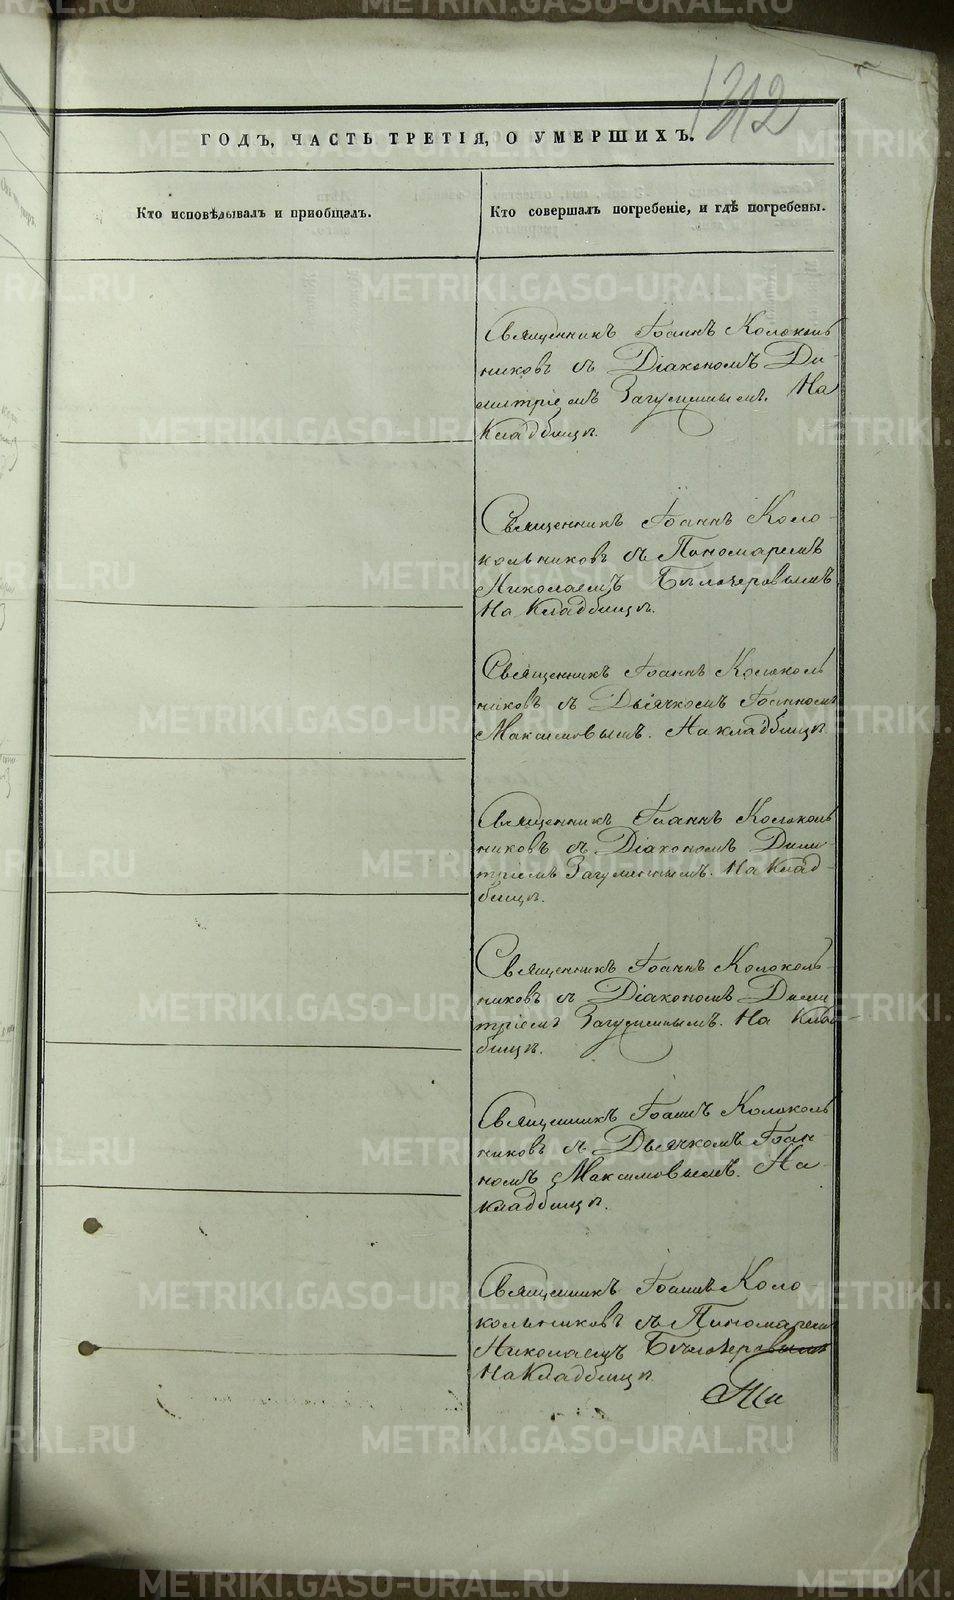 1312
ГОДЪ, ЧАСТЬ ТРЕТІЯ, О УМЕРШИХЪ.
Кто исповѣдывалъ и приобщалъ.
Кто совершалъ погребеніе, и гдѣ погребены.
Священникъ Іоаннъ Колоколь
никовъ съ Діакономъ Ди-
митріемъ Загуменнымъ. На
Кладбищѣ.
Священникъ Іоаннъ Коло-
кольниковъ съ Пономаремъ
Николаемъ Бѣлозеровымъ.
На Кладбищѣ.
Священникъ Іоаннъ Колоколь
никовъ съ Дьячкомъ Іоанномъ
Максимовымъ. На кладбищѣ
Священникъ Іоаннъ Колоколь
никовъ съ Діакономъ Дими
тріемъ Загуменнымъ. На Клад-
бищѣ.
Священникъ Іоаннъ Колоколь-
никовъ съ Діакономъ Дими
тріемъ Загуменнымъ. На Клад-
бищѣ.
Священникъ Іоаннъ Колоколь
никовъ съ Дьячкомъ Іоан-
номъ Максимовымъ. На-
кладбищѣ.
Священникъ Іоаннъ Коло
кольниковъ съ Пономаремъ
Николаемъ Бѣлозеровымъ
На Кладбищѣ.
METRIKI.GASO-URAL.RU